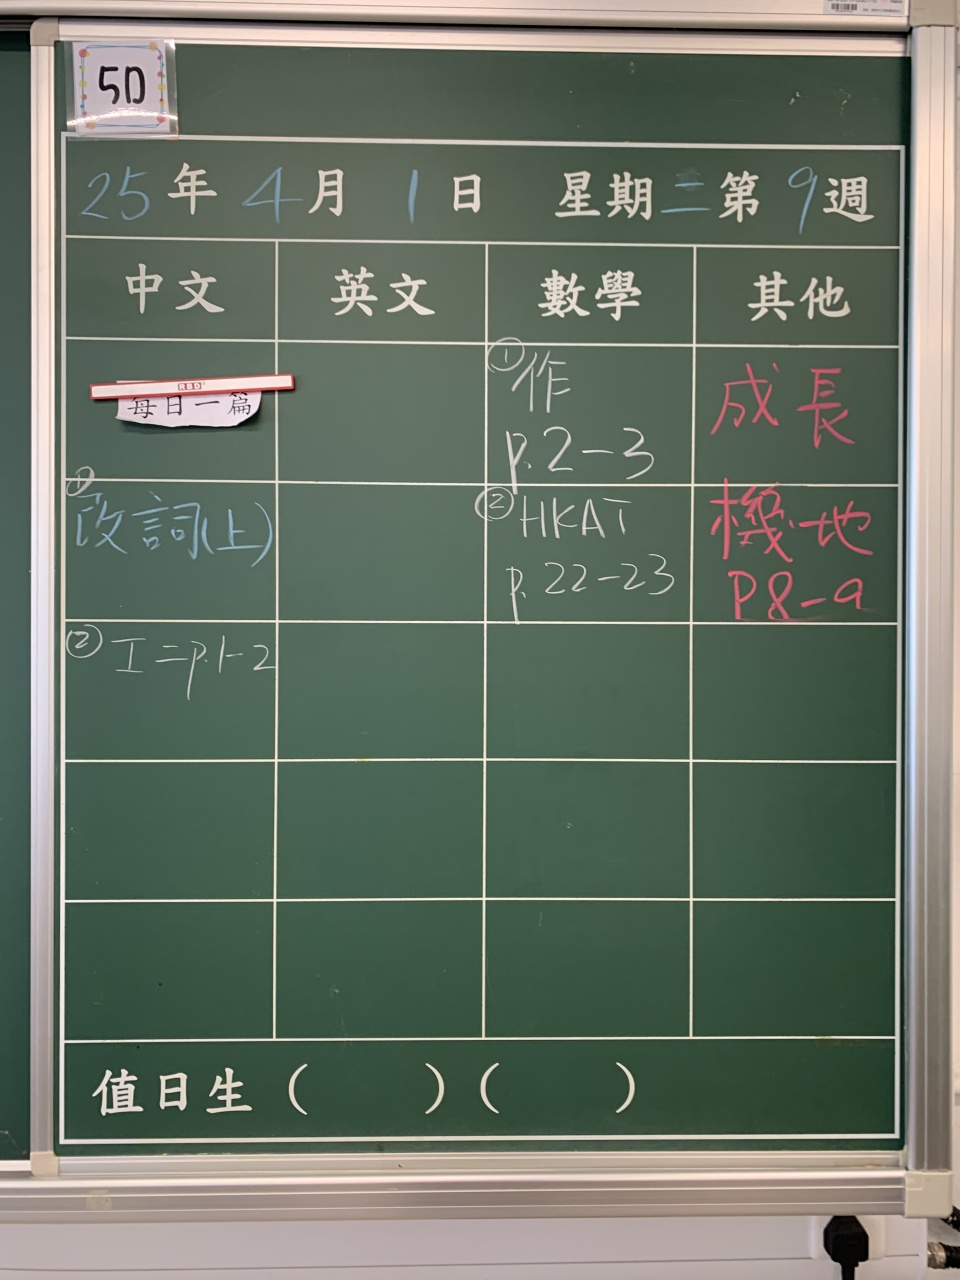 5D
25年4月1日 星期二第9週
中文 英文 數學 其他
RBD
每日一篇
① 作
p.2-3
成長
① 改詞(上)
② HKAT
p.22-23
機地
P8-9
② 工二p.1-2
值日生 ( ) ( )